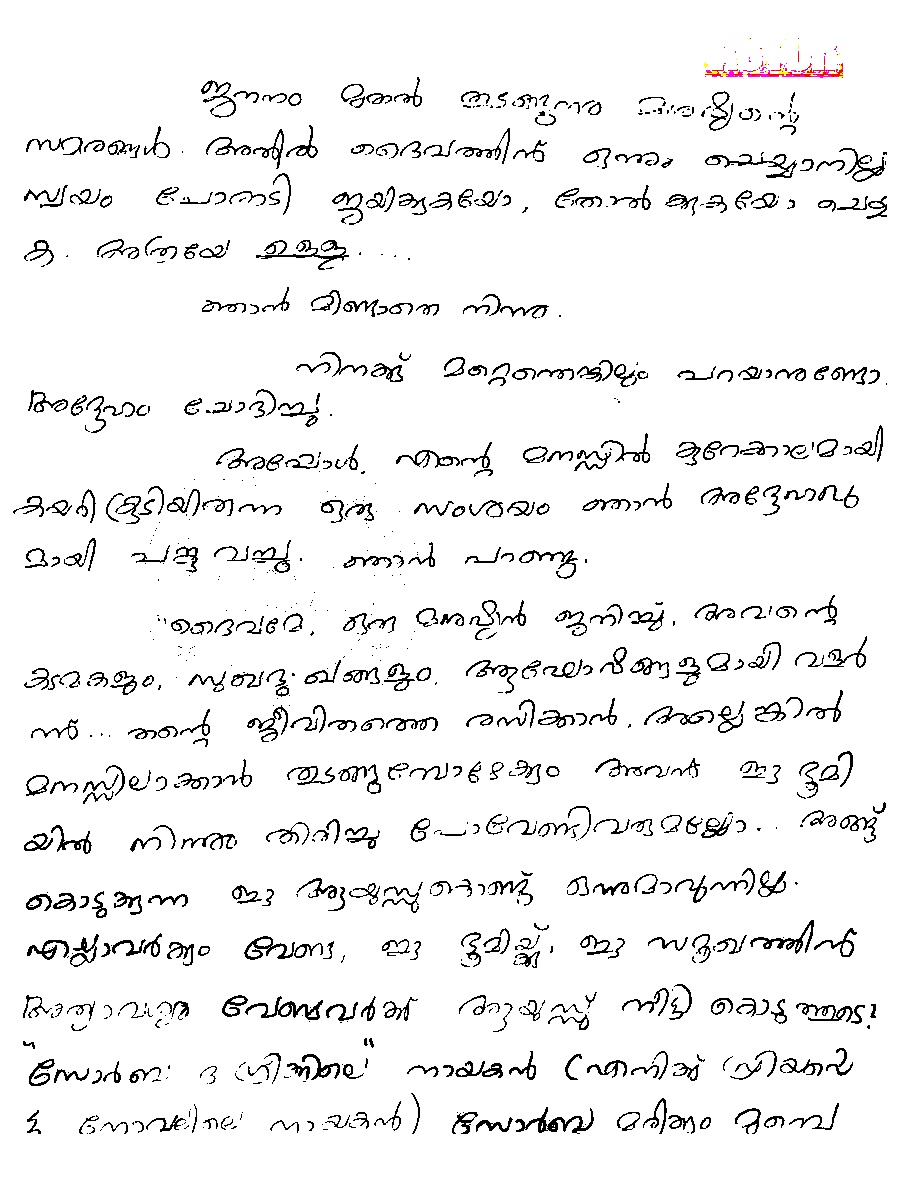 ജനനം മുതൽ തുടങ്ങുന്നു മനുഷ്യന്റെ
സമരങ്ങൾ. അതിൽ ദൈവത്തിന് ഒന്നും ചെയ്യാനില്ല
സ്വയം പോരാടി ജയിക്കുകയോ, തോൽക്കുകയോ ചെയ്യു
ക. അത്രയേ ഉള്ളൂ....
ഞാൻ മിണ്ടാതെ നിന്നു.
നിനക്ക് മറ്റെന്തെങ്കിലും പറയാനുണ്ടോ.
അദ്ദേഹം ചോദിച്ചു.
അപ്പോൾ, എന്റെ മനസ്സിൽ കുറേക്കാലമായി
കയറിക്കൂടിയിരുന്ന ഒരു സംശയം ഞാൻ അദ്ദേഹവു
മായി പങ്കുവച്ചു. ഞാൻ പറഞ്ഞു.
"ദൈവമേ, ഒരു മനുഷ്യൻ ജനിച്ച്, അവന്റെ
കടമകളും, സുഖദുഃഖങ്ങളും, ആഘോഷങ്ങളുമായി വളർ
ന്ന്... തന്റെ ജീവിതത്തെ രസിക്കാൻ, അല്ലെങ്കിൽ
മനസ്സിലാക്കാൻ തുടങ്ങുമ്പോഴേക്കും അവന് ഈ ഭൂമി
യിൽ നിന്നും തിരിച്ചു പോവേണ്ടിവരുമല്ലോ.. അങ്ങ്
കൊടുക്കുന്ന ഈ ആയുസ്സുകൊണ്ട് ഒന്നുമാവുന്നില്ല.
എല്ലാവർക്കും വേണ്ട, ഈ ഭൂമിയ്ക്ക്, ഈ സമൂഹത്തിന്
അത്യാവശ്യം വേണ്ടവർക്ക് ആയുസ്സ് നീട്ടി കൊടുത്തൂടെ?
"സോർബ ദ ഗ്രീക്കിലെ" നായകൻ (എനിക്ക് പ്രിയപ്പെ
ട്ട നോവലിലെ നായകൻ) സോർബ മരിക്കും മുമ്പെ